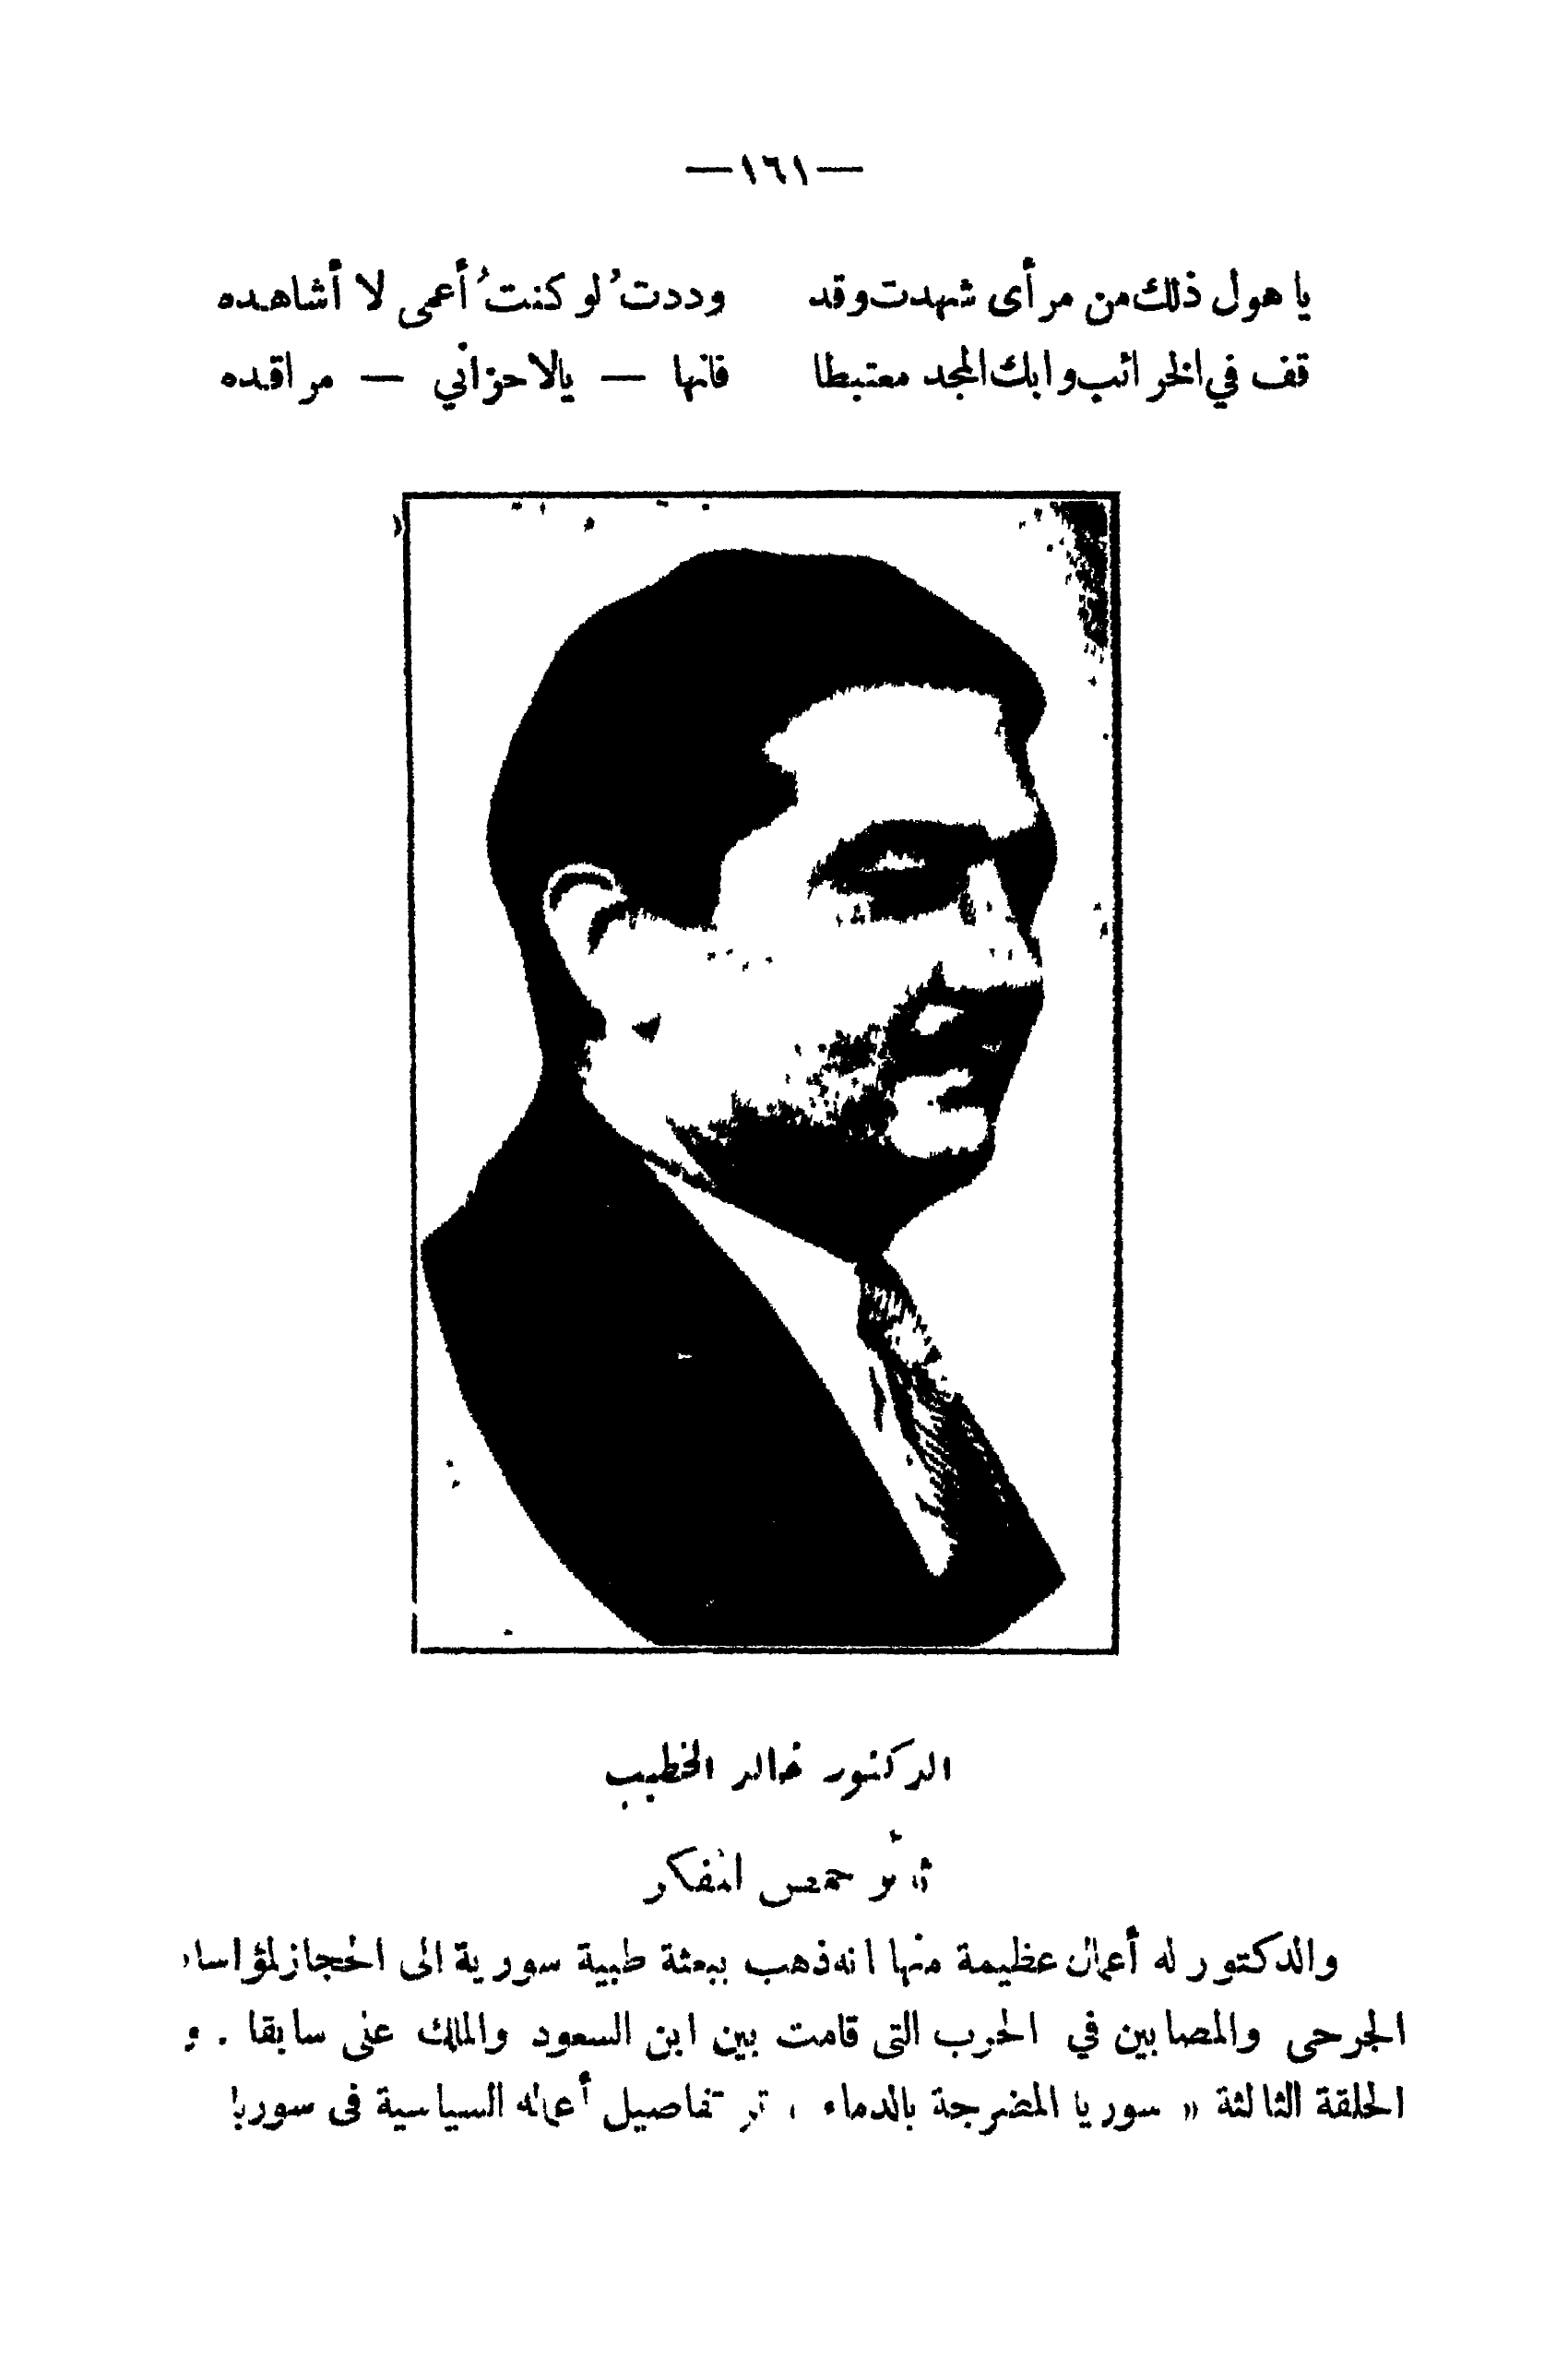 —١٦١—
يا هول ذلك من مرأى شهدت وقد وددتُ لو كنتُ أعمى لا أشاهده
قف في الخرائب وابك المجد معتبطا فانها — يالاحزاني — مراقده
الدكتور خالد الخطيب
ثائر حمص المفكر
والدكتور له أعمال عظيمة منها انه ذهب ببعثة طبية سورية الى الحجاز لمؤاساة
الجرحى والمصابين في الحرب التى قامت بين ابن السعود والملك على سابقا . و
الحلقة الثالثة « سوريا المضرجة بالدماء ، تر تفاصيل أعماله السياسية فى سوريا